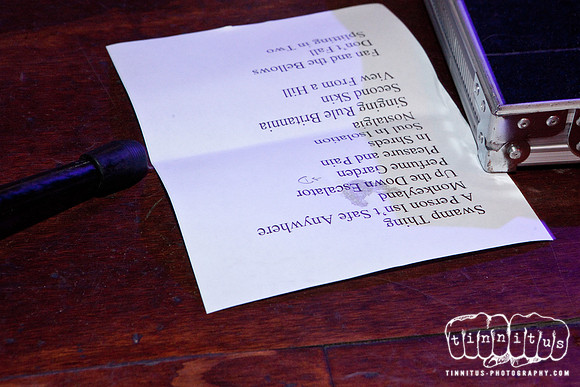 Swamp Thing
A Person Isn't Safe Anywhere
Monkeyland
Up the Down Escalator
Perfume Garden
Pleasure and Pain
In Shreds
Soul In Isolation
Nostalgia
Singing Rule Britannia
Second Skin
View From a Hill
Fan and the Bellows
Don't Fall
Splitting in Two
tinnitus
TINNITUS-PHOTOGRAPHY.COM